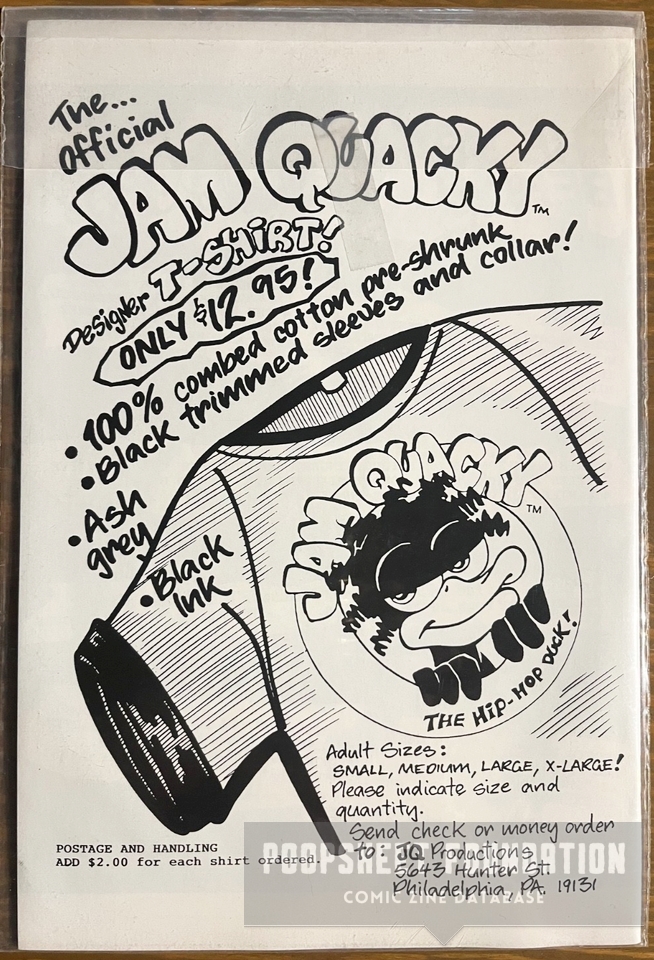 The...
Official
JAM QUACKY TM
Designer T-SHIRT!
ONLY $12.95!
• 100% combed cotton pre-shrunk
• Black trimmed sleeves and collar!
• Ash
grey
• Black
Ink
JAM QUACKY TM
THE HIP-HOP DUCK!
Adult Sizes:
SMALL, MEDIUM, LARGE, X-LARGE!
Please indicate size and
quantity.
Send check or money order
to: JQ Productions
5643 Hunter St.
Philadelphia, PA. 19131
POSTAGE AND HANDLING
ADD $2.00 for each shirt ordered.
POOPSHEET FOUNDATION
COMIC ZINE DATABASE